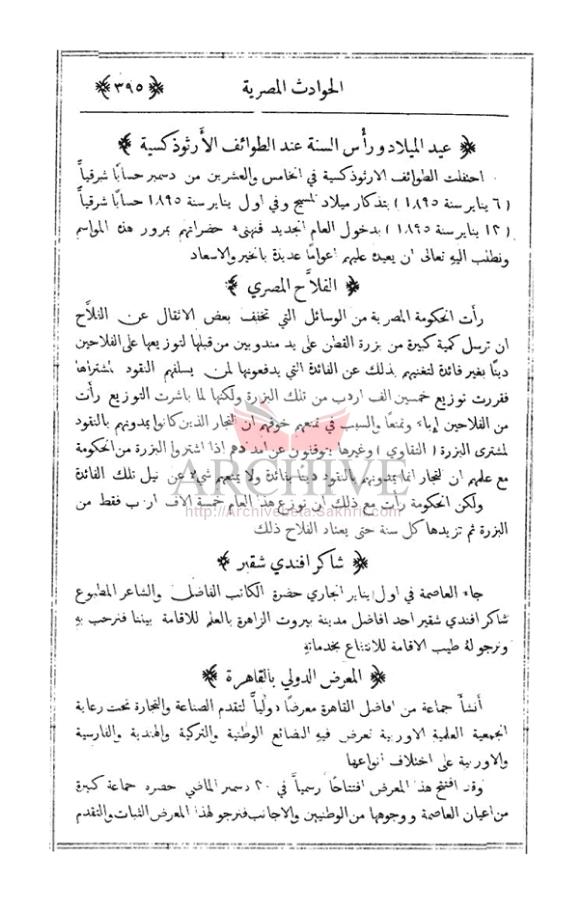 الحوادث المصرية
﴿٣٩٥﴾
﴿ عيد الميلاد ورأس السنة عند الطوائف الأرثوذكسية ﴾
احتفلت الطوائف الارثوذكسية في الخامس والعشرين من دسمبر حسابًا شرقيًّا
( ٦ يناير سنة ١٨٩٥ ) بتذكار ميلاد المسيح وفي اول يناير سنة ١٨٩٥ حسابًا شرقيًّا
( ١٢ يناير سنة ١٨٩٥ ) بدخول العام الجديد فنهنىء حضراتهم بمرور هذه المواسم
ونطلب اليه تعالى ان يعيده عليهم اعوامًا عديدة بالخير والاسعاد
﴿ الفلاَّح المصري ﴾
رأت الحكومة المصرية من الوسائل التي تخفف بعض الاثقال عن الفلاَّح
ان ترسل كمية كبيرة من بزرة القطن على يد مندوبين من قبلها لتوزيعها على الفلاحين
دينًا بغير فائدة لتغنيهم بذلك عن الفائدة التي يدفعونها لمن يسلفهم النقود لمشتراها
فقررت توزيع خمسين الف اردب من تلك البزرة ولكنها لما باشرت التوزيع رأت
من الفلاحين إباء وتمنعًا والسبب في تمنعهم خوفهم ان التجار الذين كانوا يمدونهم بالنقود
لمشترى البزرة ( التقاوي ) وغيرها يتوقفون عن امدادهم اذا اشتروا البزرة من الحكومة
مع علمهم ان التجار انما يمدونهم بالنقود دينًا بفائدة ولا يمنعهم شيء عن نيل تلك الفائدة
ولكن الحكومة رأت مع ذلك ان توزع هذا العام خمسة الاف اردب فقط من
البزرة ثم تزيدها كل سنة حتى يعتاد الفلاح ذلك
﴿ شاكر افندي شقير ﴾
جاء العاصمة في اول يناير الجاري حضرة الكاتب الفاضل والشاعر المطبوع
شاكر افندي شقير احد افاضل مدينة بيروت الزاهرة بالعلم للاقامة بيننا فنرحب بهِ
ونرجو لهُ طيب الاقامة للانتفاع بخدماتهِ
﴿ المعرض الدولي بالقاهرة ﴾
أنشأ جماعة من افاضل القاهرة معرضًا دوليًّا لتقدم الصناعة والتجارة تحت رعاية
الجمعية العلمية الاوربية تعرض فيهِ البضائع الوطنية والتركية والهندية والفارسية
والاوربية على اختلاف انواعها
وقد افتتح هذا المعرض افتتاحًا رسميًّا في ٢٠ دسمبر الماضي حضره جماعة كبيرة
من اعيان العاصمة ووجوهها من الوطنيين والاجانب فنرجو لهذا المعرض الثبات والتقدم
ARCHIVE
http://Archivebeta.Sakhrit.com